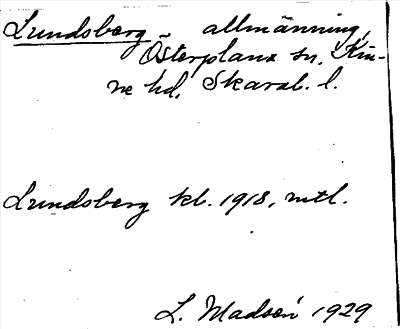 Lundsberg allmänning,
Österplana sn, Kin-
ne hd, Skarab. l.
Lundsberg kb. 1918, mtl.
L. Madsén 1929